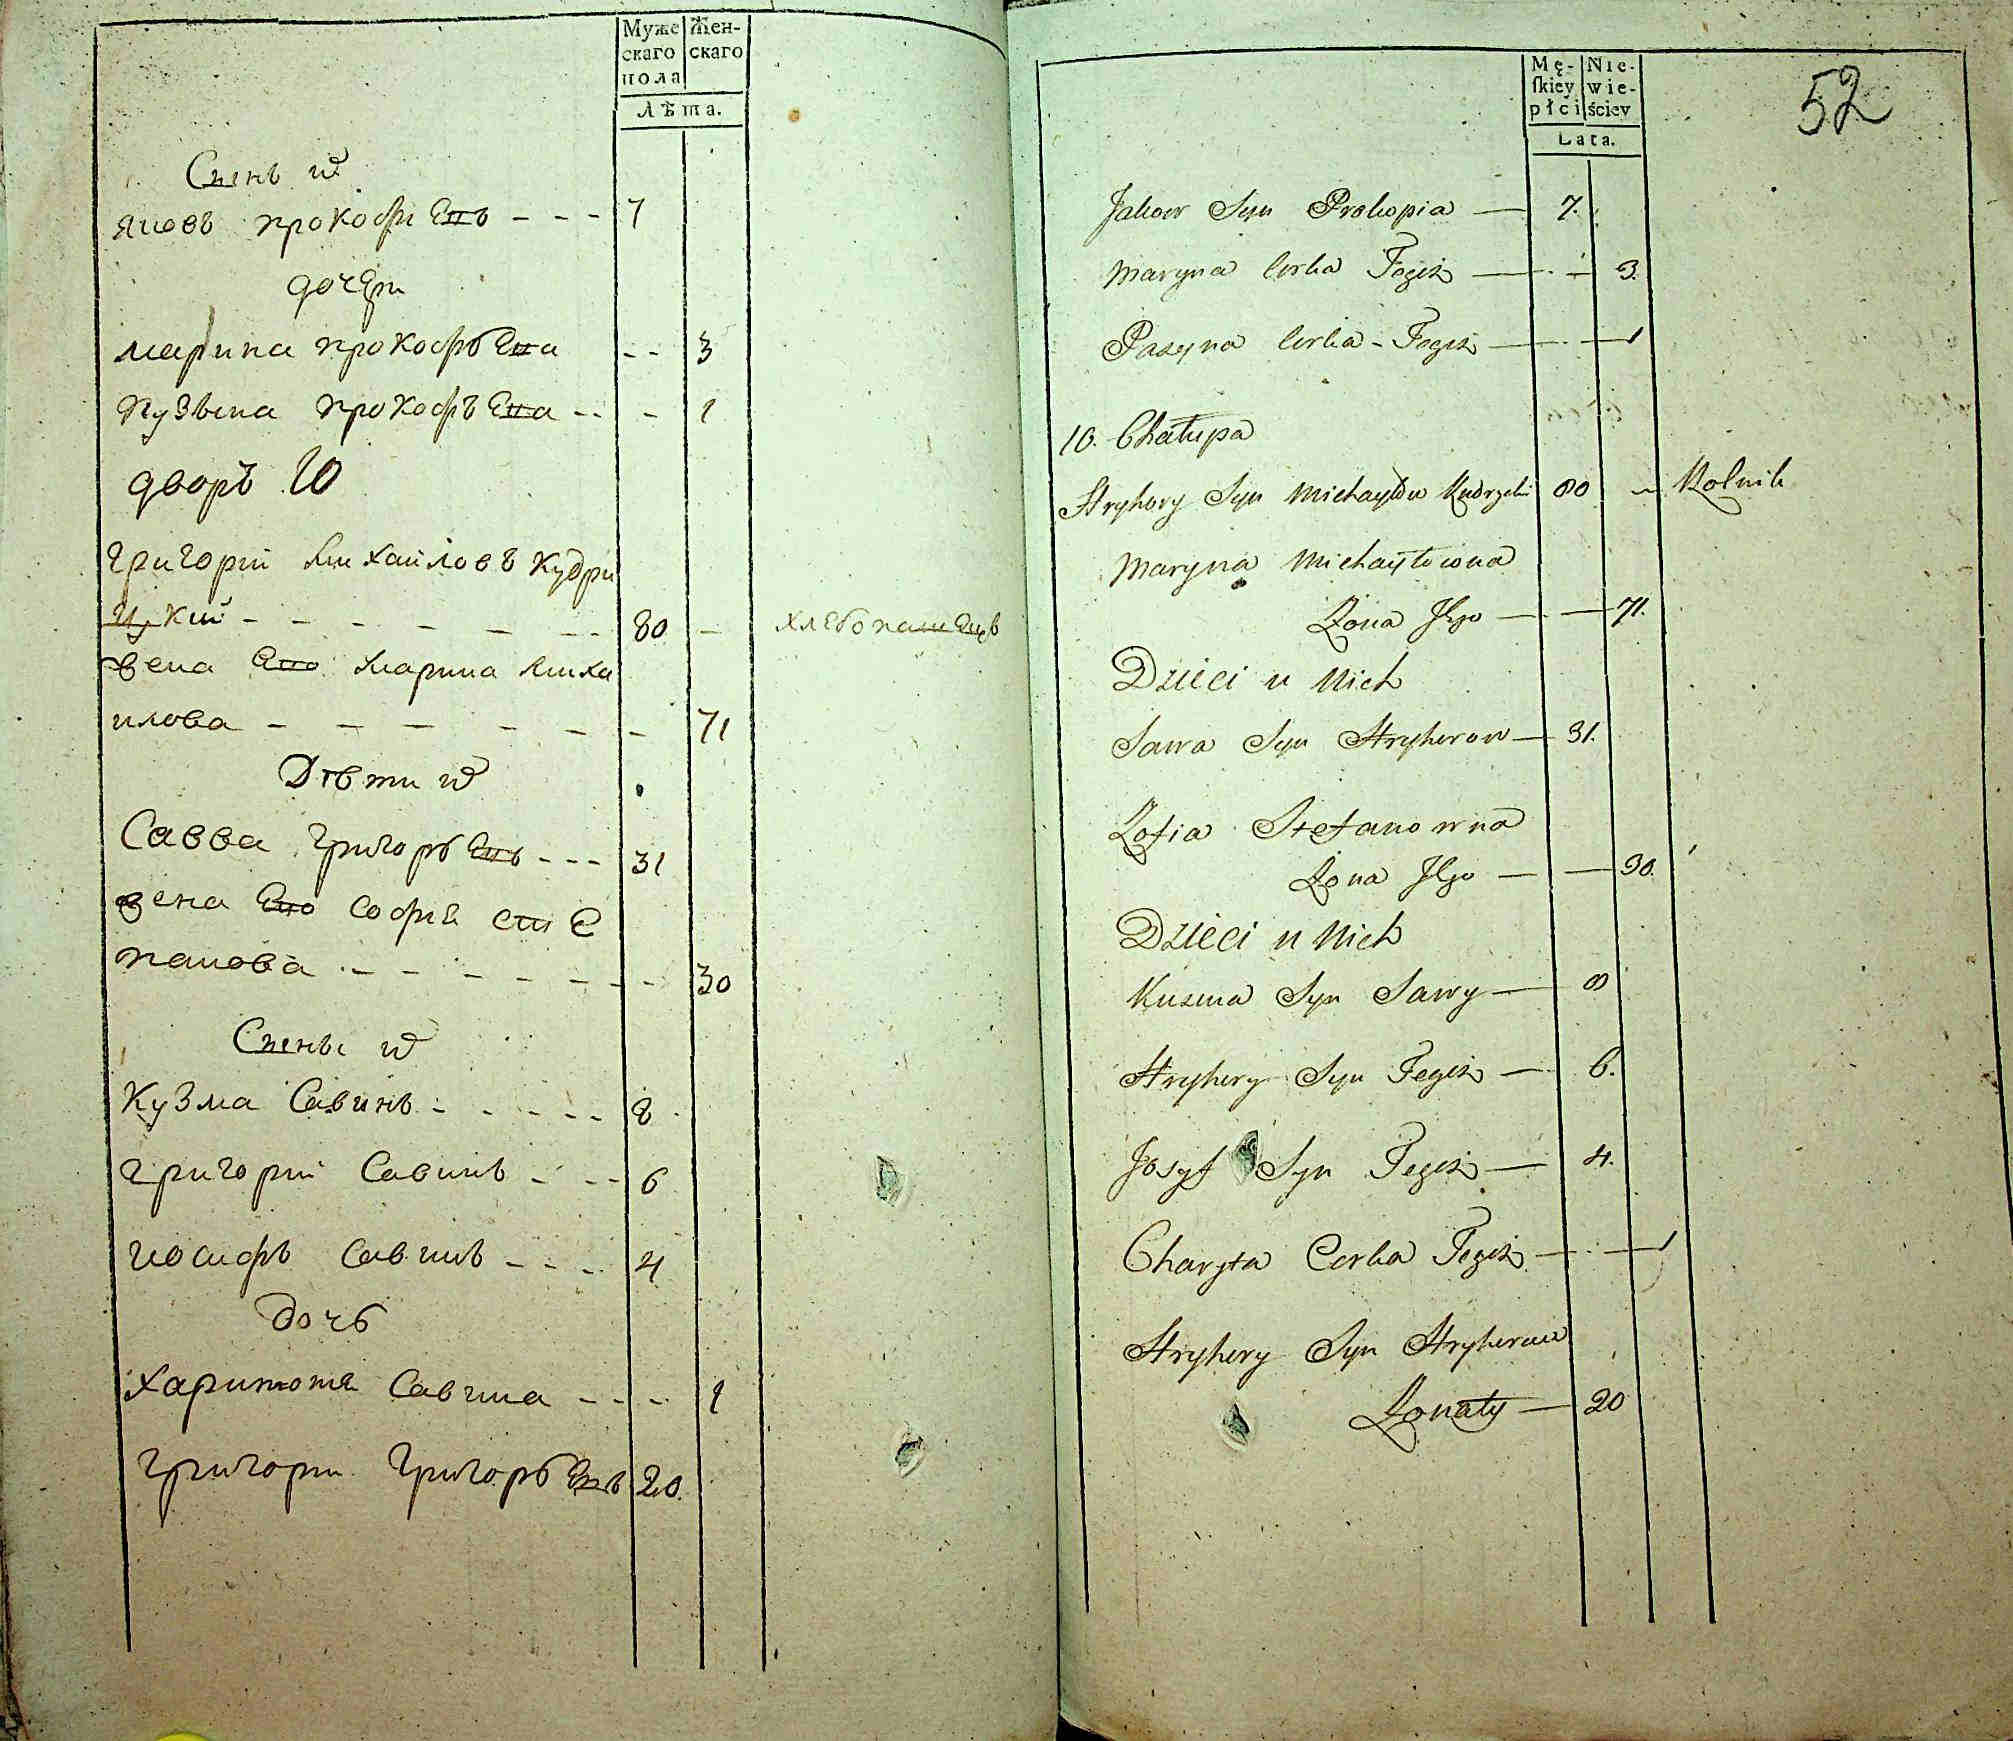 Муже Жен-
скаго скаго
пола
Лѣта.
Синъ ѿ
Яковъ прокофиевъ - - - 7
дочери
марина прокофьева - - 3
пузына прокофьева - - - 1
дворъ 10
григорій михайловъ кудри
цкий - - - - - - - 80 - хлебопашецъ
жена его марина миха
илова - - - - - - - 71
Дѣти ѿ
Савва григорьевъ - - - 31
жена его софия сте
панова - - - - - - - 30
Сины ѿ
кузма Савинъ - - - - - 8
григорий Савинъ - - - 6
иосифъ савинъ - - - - 4
дочь
харитония Савина - - - - 1
григорий григорьевъ 20.
Mę- Nie-
ſkiey wie-
płci ściey
Lata.
52
Jakow Syn Prokopia — 7.
Maryna Corka Tegoż — - - 3.
Pazyna Corka - Tegoż — - — 1
10. Chałupa
Hryhory Syn Michayłow Kudrycki 80 - Rolnik
Maryna Michayłowna
Żona Jego — — 71.
Dzieci u Nich
Sawa Syn Hryhorow — 31.
Zofia Stefanowna
Żona Jego — — 30.
Dzieci u Nich
Kuzma Syn Sawy — 8
Hryhory Syn Tegoż — 6.
Josyf Syn Tegoż — 4.
Charyta Corka Tegoż — - — 1
Hryhory Syn Hryhorow
Żonaty — 20